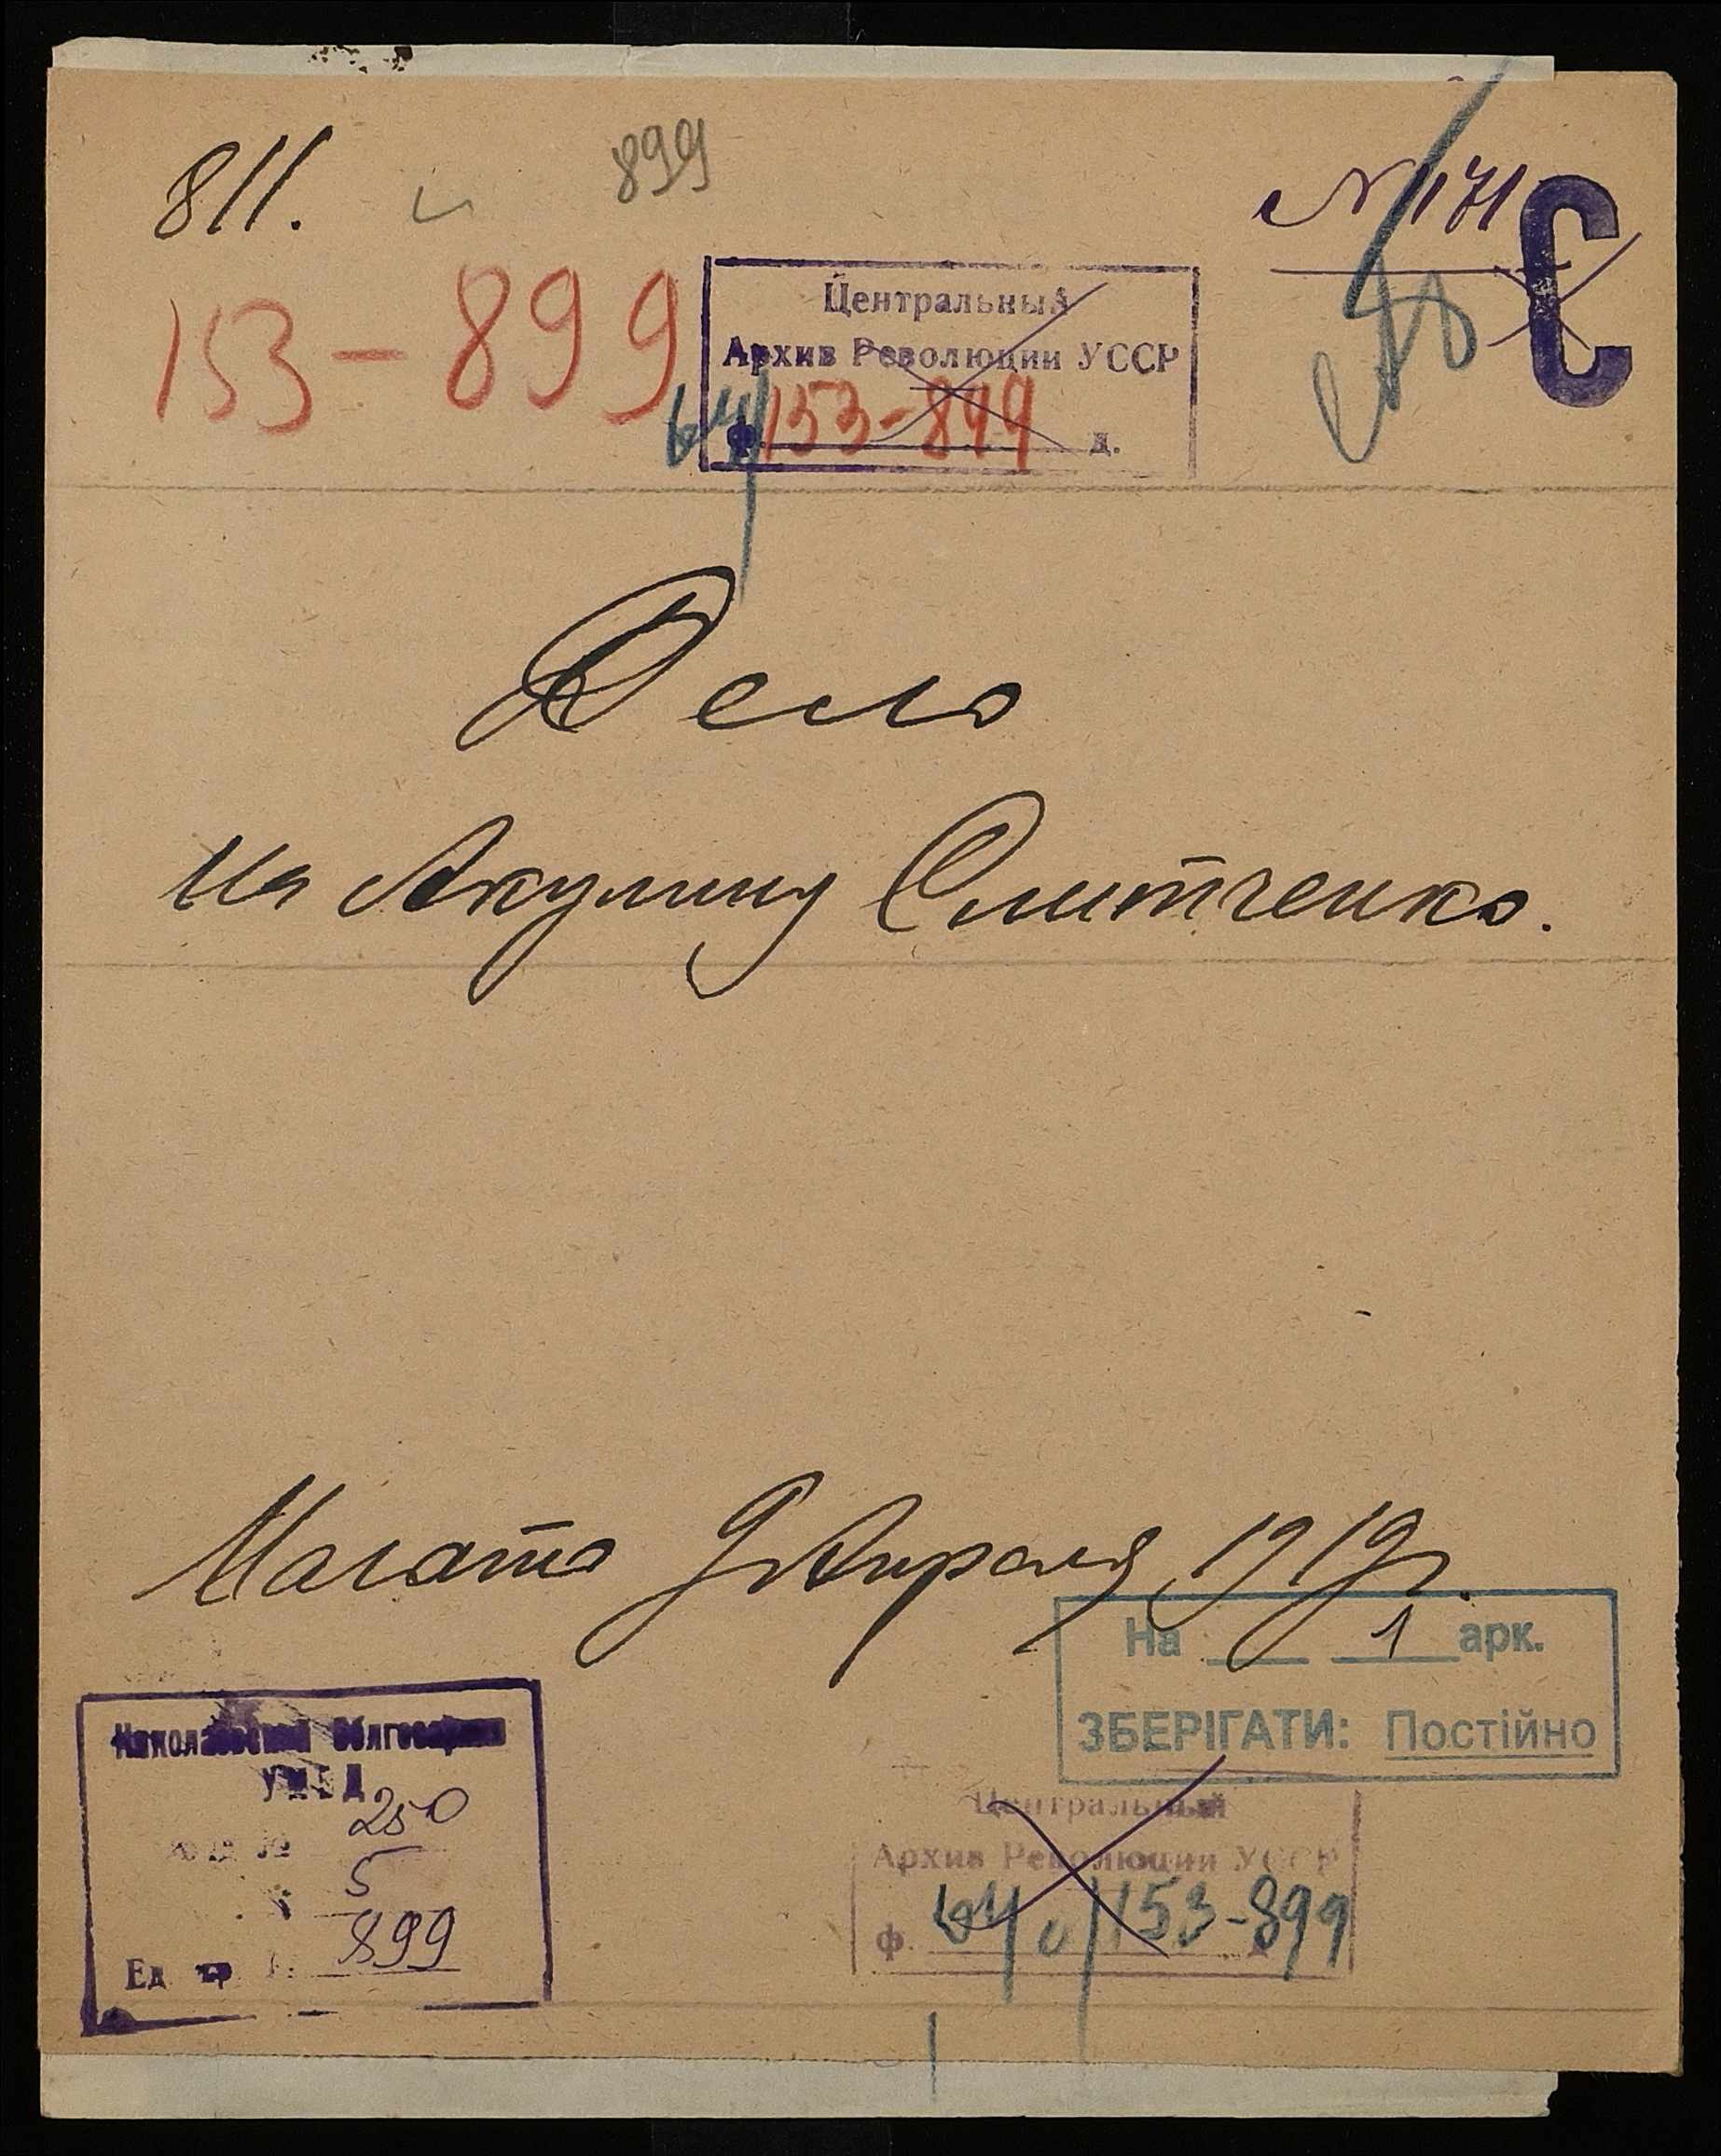 811.
899
№ 1171
С
153-899
Центральный
Архив Революции УССР
ф. 153-899 д.
Дело
На Акулину Слитченко.
Начато 9 Апреля 1919 г.
На 1 арк.
ЗБЕРІГАТИ: Постійно
Николаевский Облгосархив
УМВД
250
5
Ед. хр. 899
Центральный
Архив Революции УССР
ф. 153-899